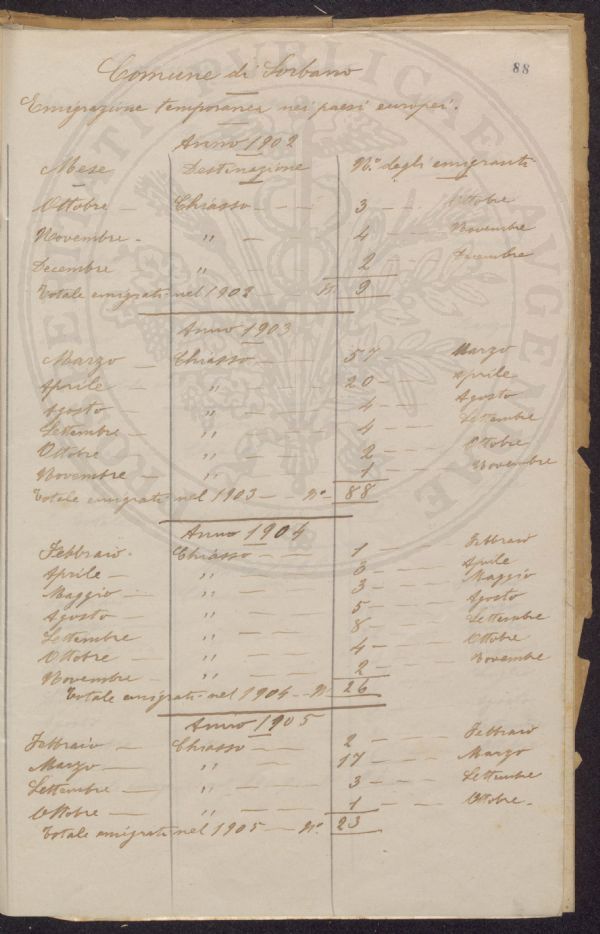 88
Comune di Sorbano
Emigrazione temporanea nei paesi europei.
Anno 1902
Mese Destinazione N.o degli emigranti
Ottobre — Chiasso — — — 3 — — Ottobre
Novembre - " — — — 4 — — Novembre
Decembre — " — — — 2 — — Decembre
Totale emigrati nel 1902 — — N. 9
Anno 1903
Marzo — Chiasso — — — 57 — — Marzo
Aprile — " — — — 20 — — Aprile
Agosto — " — — — 4 — — Agosto
Settembre — " — — — 4 — — Settembre
Ottobre — " — — — 2 — — Ottobre
Novembre — " — — — 1 — — Novembre
Totale emigrati nel 1903 — — No. 88
Anno 1904
Febbraio. Chiasso — — — 1 — — — Febbraio
Aprile — " — — — 3 — — — Aprile
Maggio — " — — — 3 — — — Maggio
Agosto — " — — — 5 — — — Agosto
Settembre — " — — — 8 — — — Settembre
Ottobre — " — — — 4 — — — Ottobre
Novembre — " — — — 2 — — — Novembre
Totale emigrati nel 1904 — — N. 26
Anno 1905
Febbraio — Chiasso — — — 2 — — — Febbraio
Marzo — " — — — 17 — — — Marzo
Settembre — " — — — 3 — — — Settembre
Ottobre — " — — — 1 — — — Ottobre.
Totale emigrati nel 1905 — — No. 23